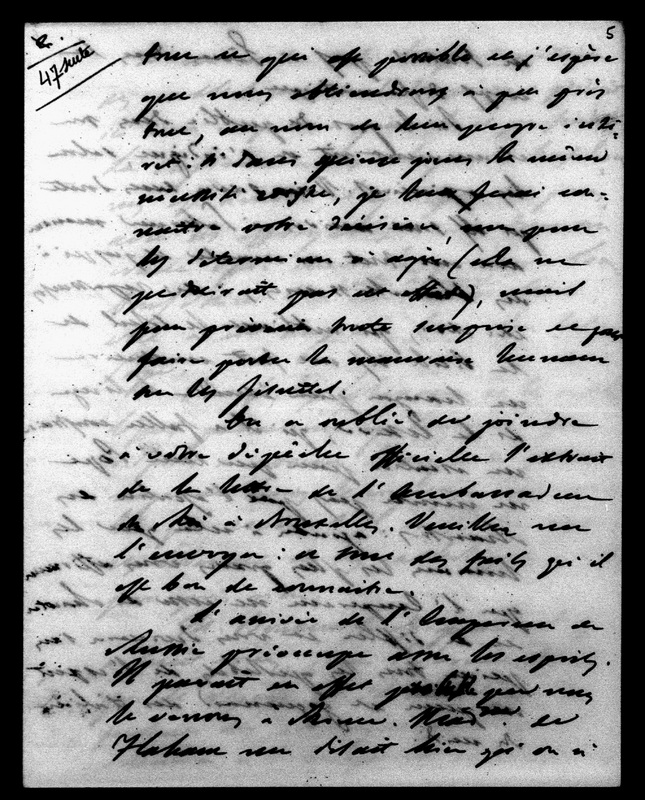 5
2.
47 suite
tout ce qui est possible et j'espère
que nous obtiendrons à peu près
tout, au nom de leur propre inté-
rêt. Si dans quinze jours la même
nécessité existe, je leur ferai con-
naître votre décision, non pour
les déterminer à agir (cela ne
produirait pas cet effet), mais
pour prévenir toute surprise et pour
faire porter la mauvaise humeur
sur les Jésuites.
On a oublié de joindre
à votre dépêche officielle l'extrait
de la lettre de l'Ambassadeur
du Roi à Bruxelles. Veuillez me
l'envoyer : ce sont des faits qu'il
est bon de connaître.
L'arrivée de l'Empereur de
Russie préoccupe assez les esprits.
Il parait en effet probable que nous
le verrons à Rome. Mad. de
Flahaut me disait hier qu'on a